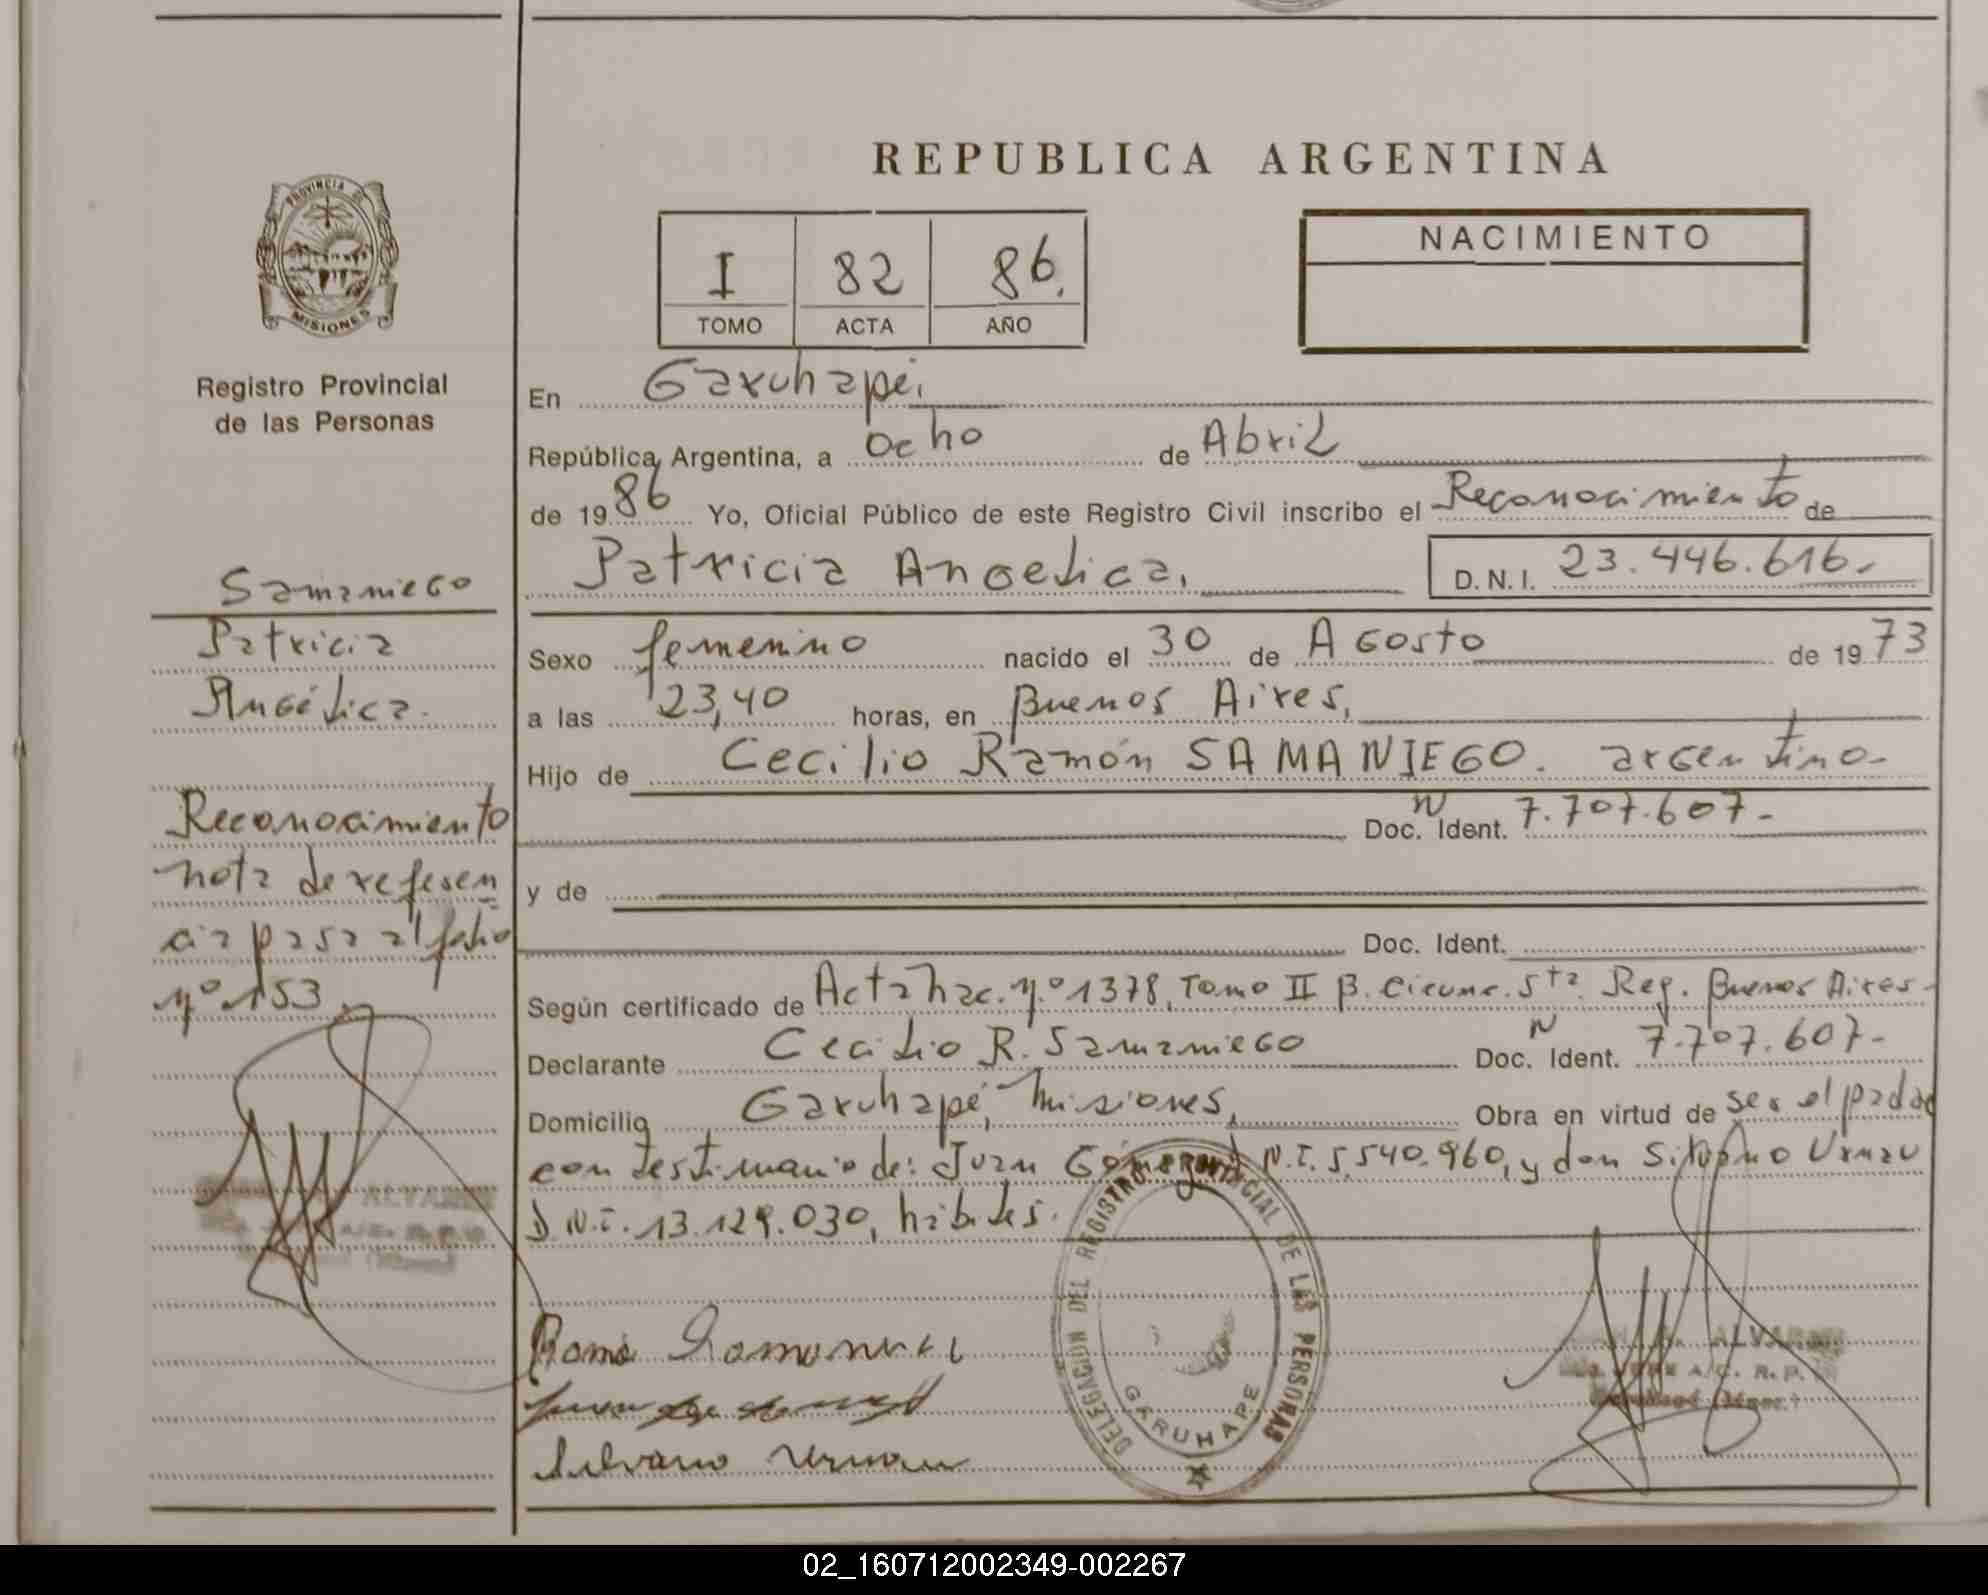 REPUBLICA ARGENTINA
PROVINCIA DE
MISIONES
Registro Provincial
de las Personas
I 82 86.
TOMO ACTA AÑO
NACIMIENTO
En Garuhapé,
República Argentina, a Ocho de Abril
de 1986 Yo, Oficial Público de este Registro Civil inscribo el Reconocimiento de
Patricia Angelica, D.N.I. 23.446.616.-
Sexo femenino nacido el 30 de Agosto de 1973
a las 23,40 horas, en Buenos Aires,
Hijo de Cecilio Ramón SAMANIEGO. argentino-
Doc. Ident. Nº 7.707.607.-
y de
Doc. Ident.
Según certificado de Acta Nac. Nº 1378, Tomo II B. Circunc. 5ta. Reg. Buenos Aires-
Declarante Cecilio R. Samaniego Doc. Ident. Nº 7.707.607-
Domicilio Garuhapé, Misiones, Obra en virtud de ser el padre
con testimonio de: Juan Gómez D.N.I. 5.540.960, y don Silvano
D.N.I. 13.129.030, hábiles.
Samaniego
Patricia
Angélica.
Reconocimiento
nota de referen
cia pasa al folio
nº 153
ALVAREZ
DELEGACION DEL REGISTRO PROVINCIAL DE LAS PERSONAS
GARUHAPE
ALVAREZ
Silvano
02_160712002349-002267